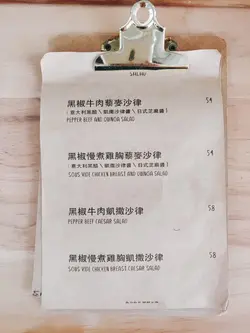 SALAD
黑椒牛肉藜麥沙律 54
(意大利黑醋 \ 凱撒沙律醬 \ 日式芝麻醬)
PEPPER BEEF AND QUINOA SALAD
黑椒慢煮雞胸藜麥沙律 54
(意大利黑醋 \ 凱撒沙律醬 \ 日式芝麻醬)
SOUS VIDE CHICKEN BREAST AND QUINOA SALAD
黑椒牛肉凱撒沙律 58
PEPPER BEEF CAESAR SALAD
黑椒慢煮雞胸凱撒沙律 58
SOUS VIDE CHICKEN BREAST CAESAR SALAD